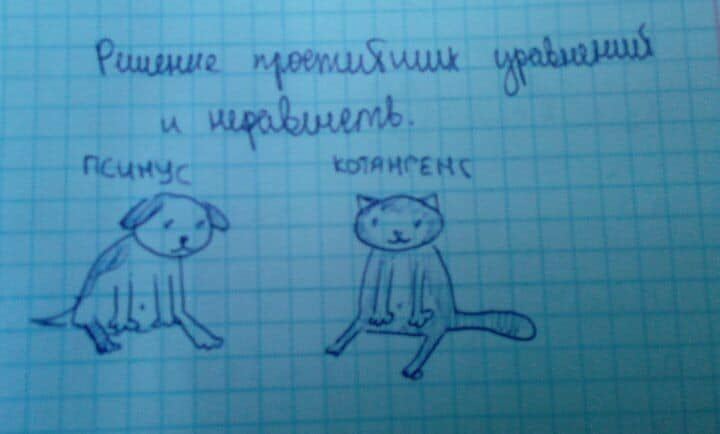 Решение простейших уравнений
и неравенств.
ПСИНУС КОТАНГЕНС